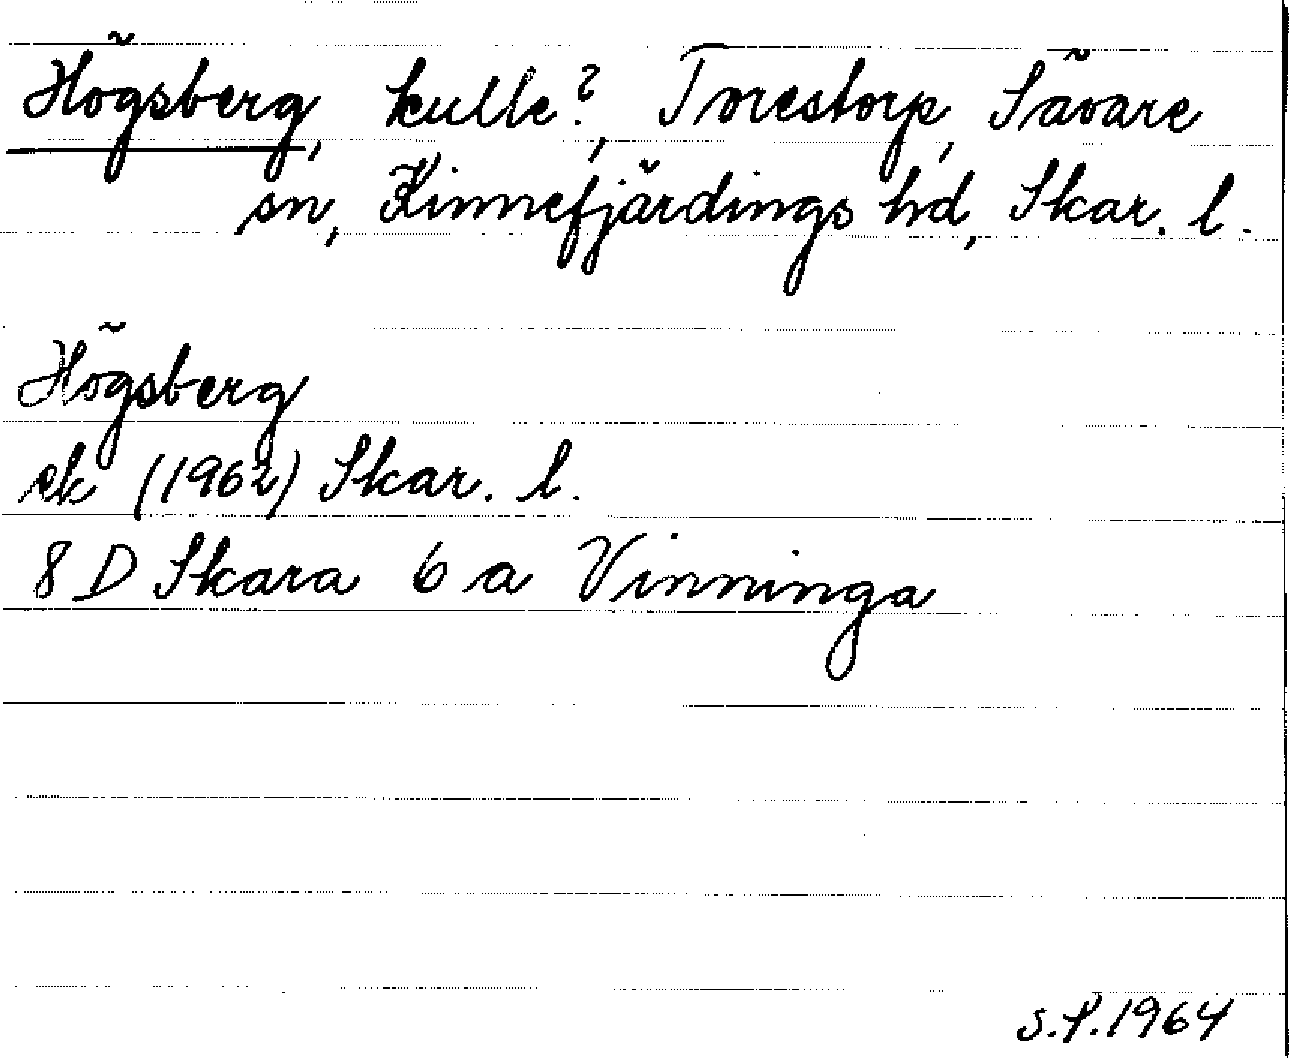 Högsberg, kulle?, Torestorp, Sävare
sn, Kinnefjärdings hd, Skar. l.
Högsberg
ek (1962) Skar. l.
8 D Skara 6 a Vinninga
S.P. 1964